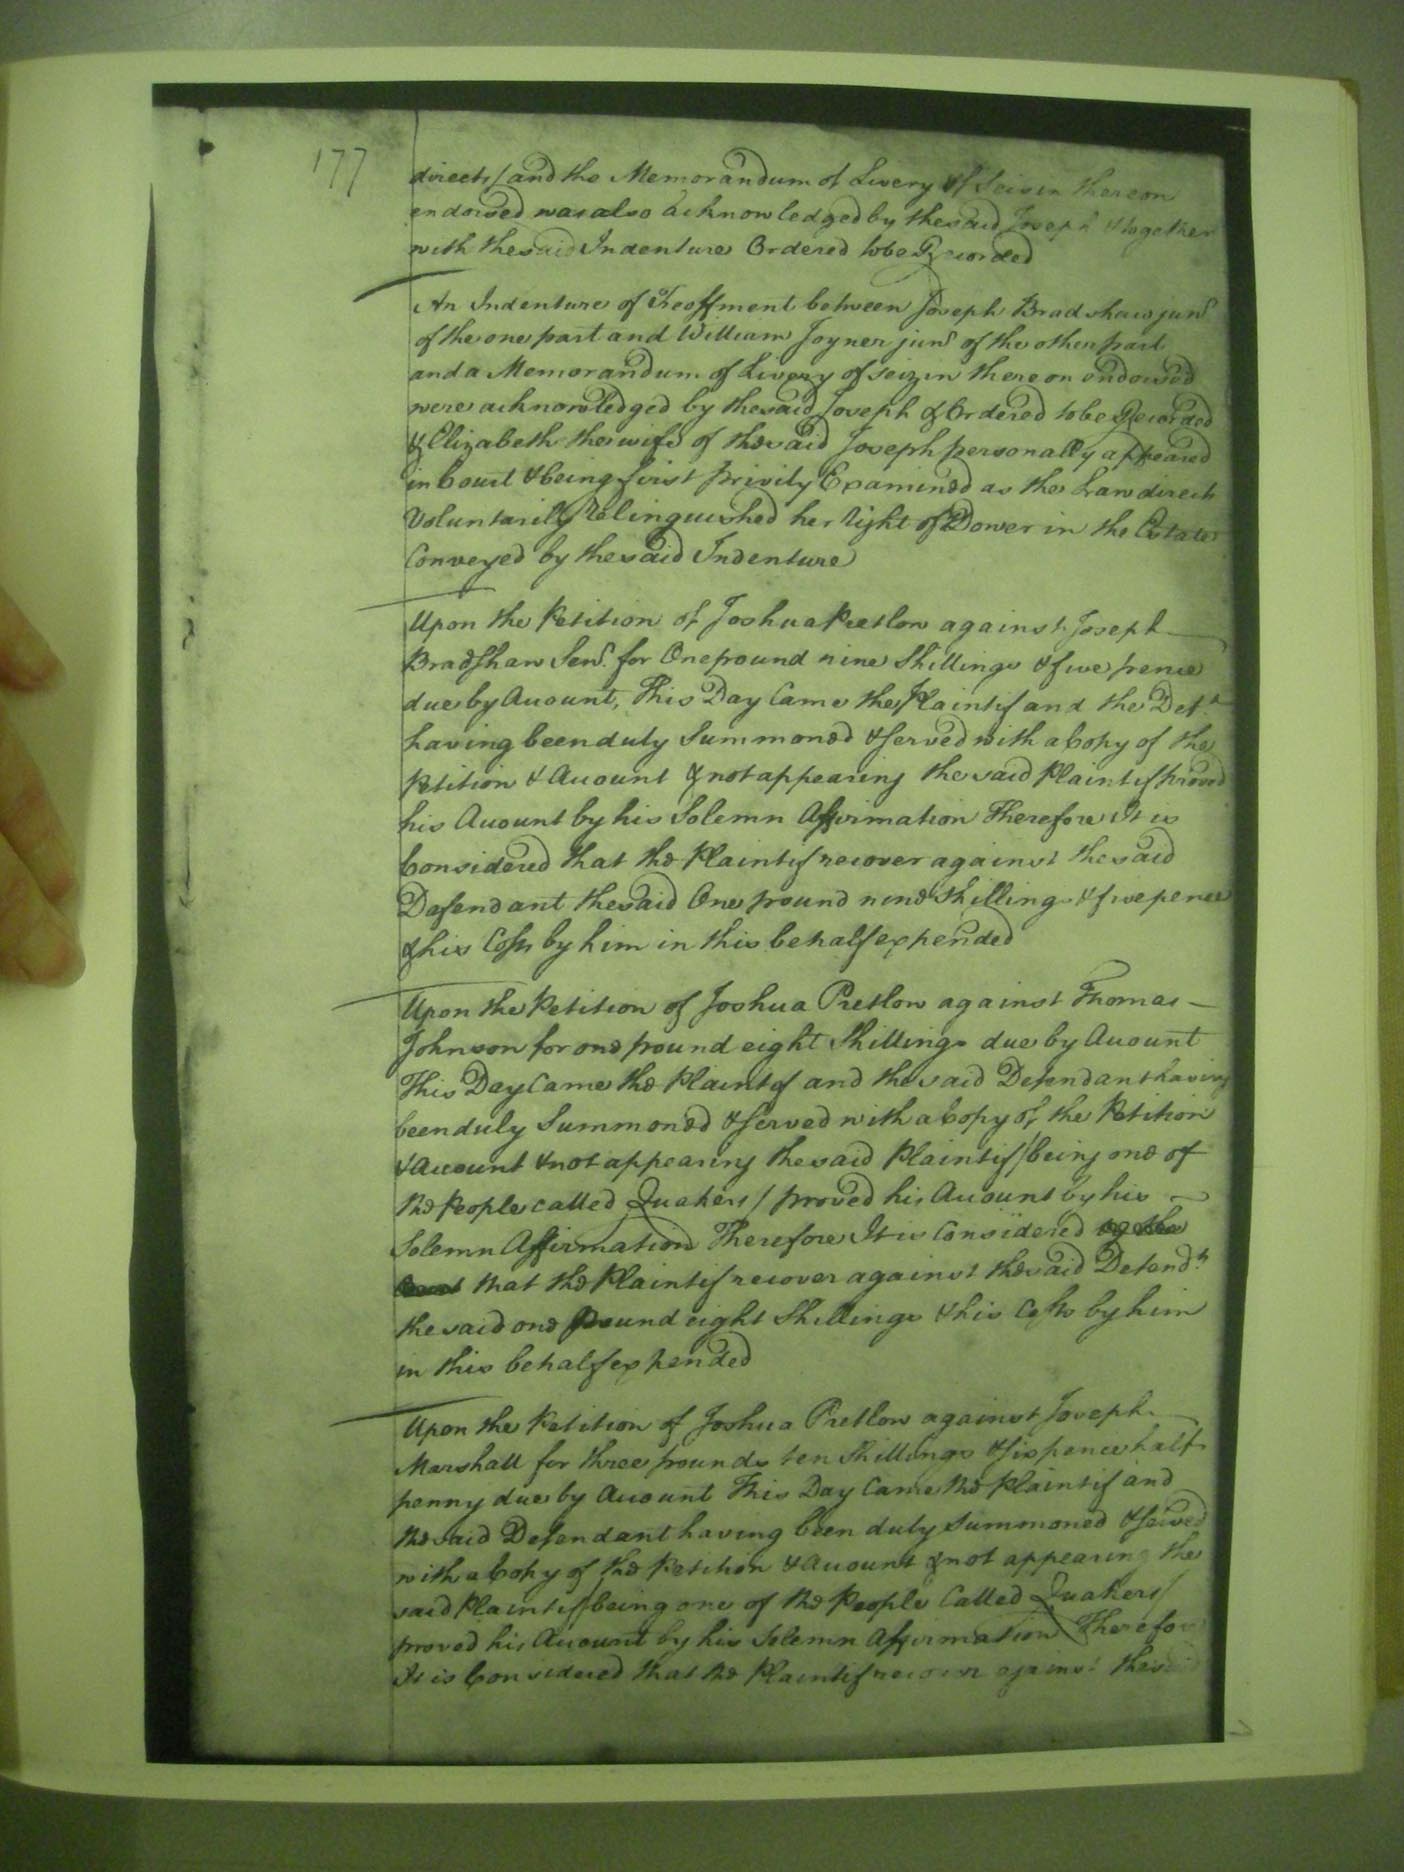 177
directs/ and the Memorandum of Livery of Seisin thereon
endorsed was also acknowledged by the said Joseph & together
with the said Indenture Ordered to be Recorded
An Indenture of Feoffment between Joseph Bradshaw junr
of the one part and William Joyner junr of the other part
and a Memorandum of Livery of seizin thereon endorsed
were acknowledged by the said Joseph & Ordered to be Recorded
& Elizabeth the wife of the said Joseph personally appeared
in Court & being first privily Examined as the Law directs
Voluntarily relinquished her right of Dower in the Estate
Conveyed by the said Indenture
Upon the Petition of Joshua Pretlow against Joseph
Bradshaw Senr. for One pound nine Shillings & five pence
due by Account, This Day Came the Plaintif and the Deft.
having been duly Summoned & served with a Copy of the
Petition & Account & not appearing the said Plaintif proved
his Account by his Solemn Affirmation Therefore It is
Considered that the Plaintif recover against the said
Defendant the said One pound nine shillings & five pence
& his Costs by him in this behalf expended
Upon the Petition of Joshua Pretlow against Thomas
Johnson for one pound eight Shillings due by Account
This Day Came the Plaintif and the said Defendant having
been duly Summoned & served with a Copy of the Petition
& Account & not appearing the said Plaintif/being one of
the People called Quakers/ proved his Account by his
Solemn Affirmation Therefore It is Considered by the
Court that the Plaintif recover against the said Defendt
the said one pound eight Shillings & his Costs by him
in this behalf expended
Upon the Petition of Joshua Pretlow against Joseph
Marshall for three pounds ten Shillings & six pence half
penny due by Account This Day Came the Plaintif and
the said Defendant having been duly Summoned & served
with a Copy of the Petition & Account & not appearing the
said Plaintif/being one of the People Called Quakers/
proved his Account by his Solemn Affirmation Therefore
It is Considered that the Plaintif recover against the said